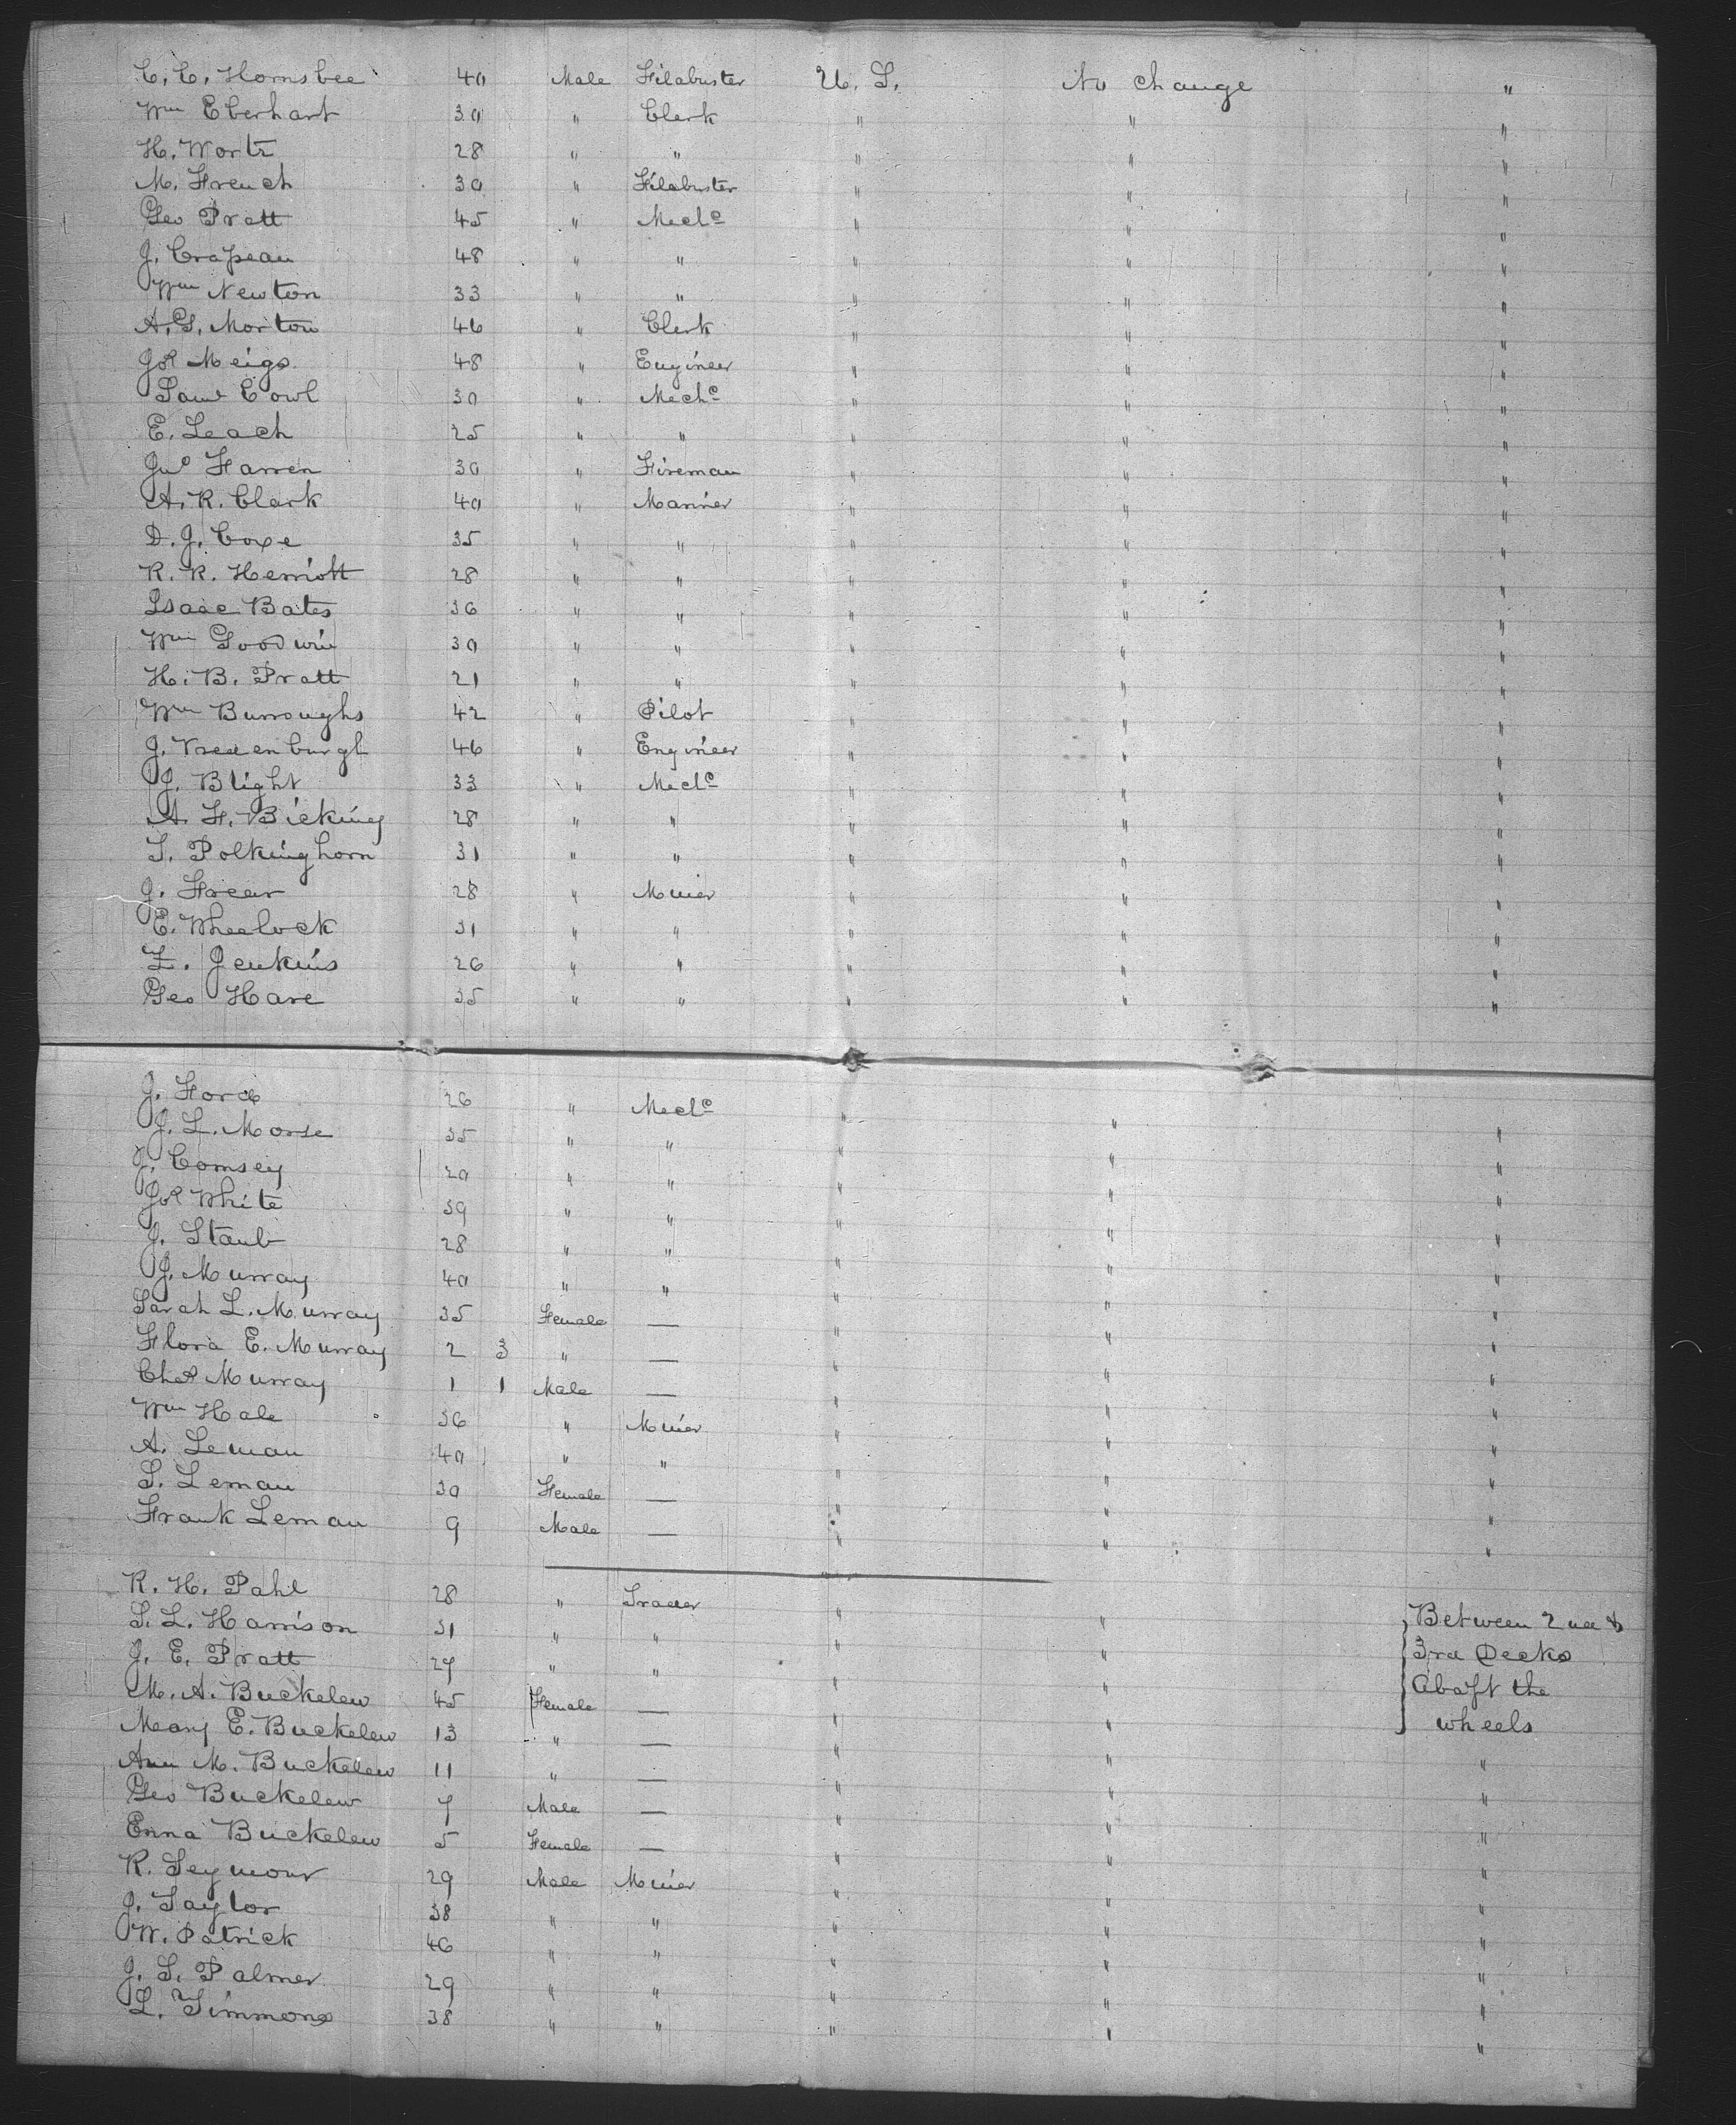 C. C. Hornsbee 40 Male Filabuster U. S. No change "
Wm Eberhart 30 " Clerk " " "
H. Wortz 28 " " " " "
M. French 30 " Filabuster " " "
Geo Pratt 45 " Mechc " " "
J. Crapeau 48 " " " " "
Wm Newton 33 " " " " "
A. G. Morton 46 " Clerk " " "
Jos Meigs 48 " Engineer " " "
Saml Cowl 30 " Mechc " " "
E. Leach 25 " " " " "
Jno Farren 30 " Fireman " " "
A. R. Clark 40 " Mariner " " "
D. J. Coxe 35 " " " " "
R. R. Herriott 28 " " " " "
Isaac Bates 36 " " " " "
Wm Goodwin 30 " " " " "
H. B. Pratt 21 " " " " "
Wm Burroughs 42 " Pilot " " "
J. Vredenburgh 46 " Engineer " " "
J. Blight 33 " Mechc " " "
A. F. Bicking 28 " " " " "
S. Polkinghorn 31 " " " " "
J. Frear 28 " Miner " " "
E. Wheelock 31 " " " " "
Z. Jenkins 26 " " " " "
Geo Hare 35 " " " " "
J. Ford 26 " Mechc " " "
J. L. Morse 35 " " " " "
J. Comsey 20 " " " " "
Jos White 39 " " " " "
J. Staub 28 " " " " "
J. Murray 40 " " " " "
Sarah L. Murray 35 Female — " " "
Flora E. Murray 2 3 " — " " "
Chas Murray 1 1 Male — " " "
Wm Hale 36 " Miner " " "
A. Leman 40 " " " " "
S. Leman 30 Female — " " "
Frank Leman 9 Male — " " "
R. H. Pahl 28 " Trader " " Between 2nd &
S. L. Harrison 31 " " " " 3rd Decks
J. E. Pratt 27 " " " " Abaft the
M. A. Buckelew 45 Female — " " wheels
Mary E. Buckelew 13 " — " " "
Ann M. Buckelew 11 " — " " "
Geo Buckelew 7 Male — " " "
Enna Buckelew 5 Female — " " "
R. Seymour 29 Male Miner " " "
J. Taylor 38 " " " " "
W. Patrick 46 " " " " "
J. S. Palmer 29 " " " " "
L. Timmons 38 " " " " "